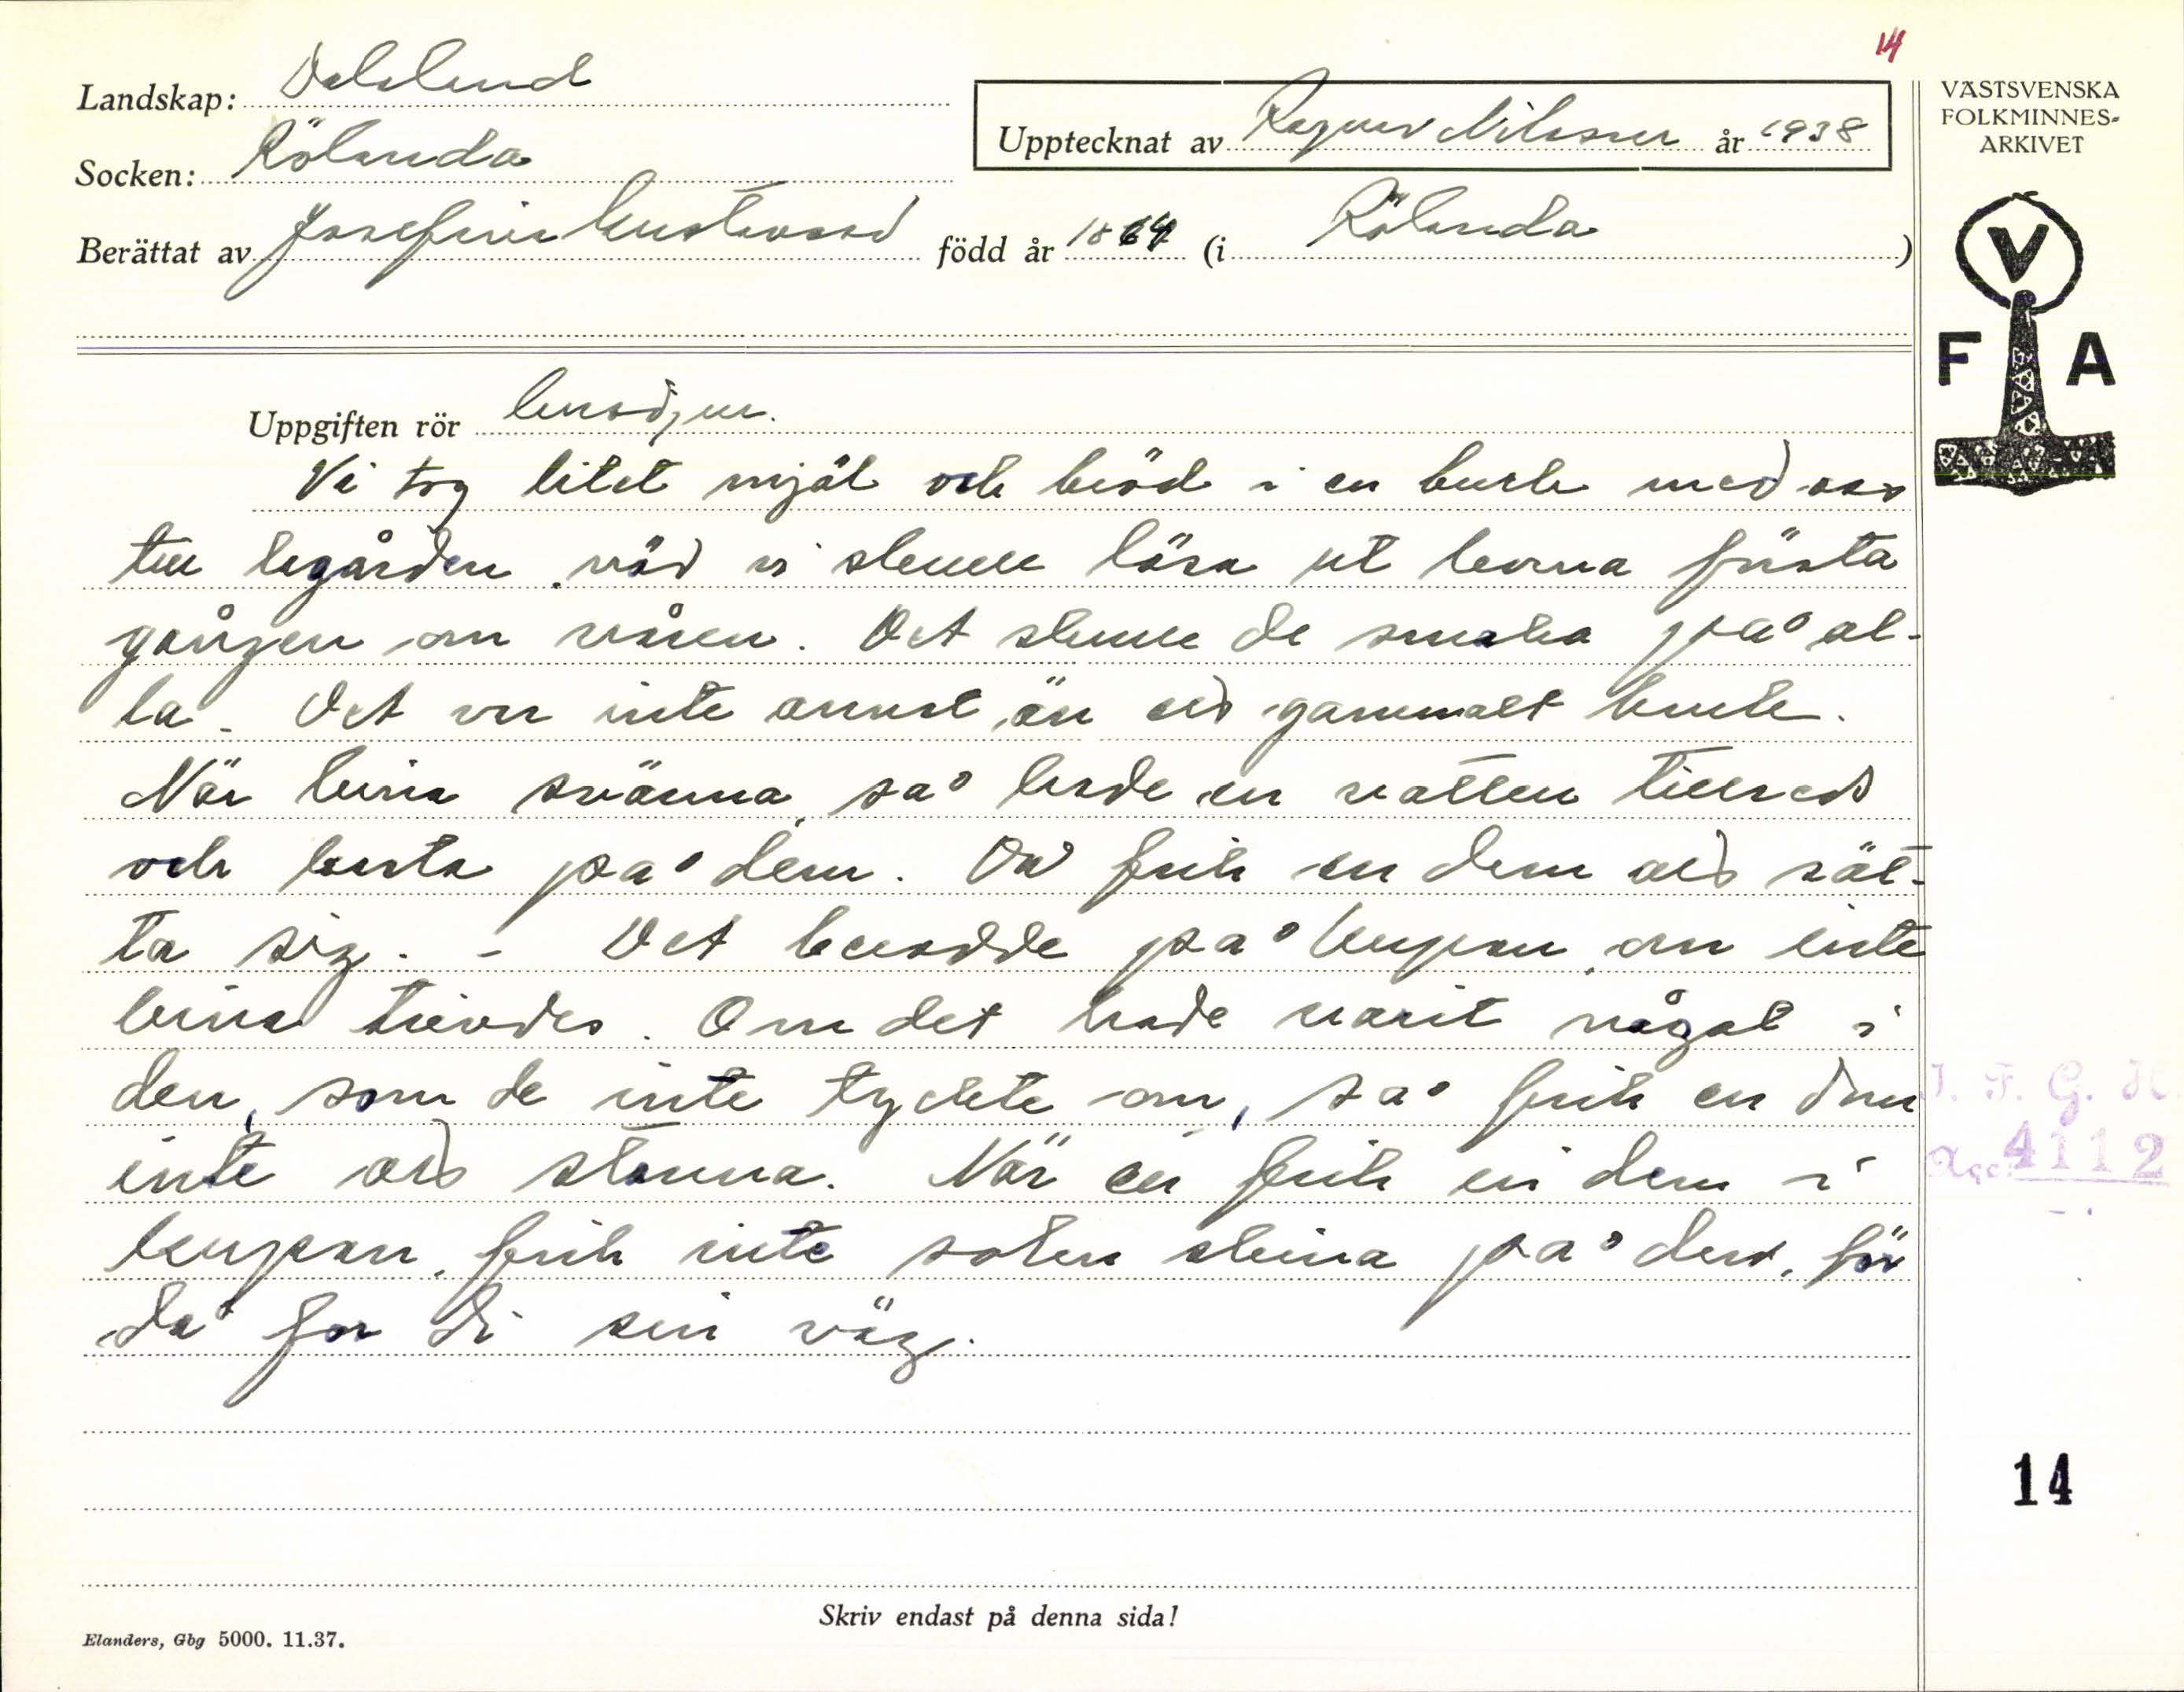 14
Landskap: Dalsland
Socken: Rölanda
Upptecknat av Ragnar Nilsson år 1938
Berättat av Josefina Gustavsson född år 1864 (i Rölanda)
VÄSTSVENSKA
FOLKMINNES-
ARKIVET
V
F A
Uppgiften rör
Vi tog litet mjöl och bröd i en burk med oss
till lagården, när vi skulle lösa ut korna första
gången om våren. Det skulle de smaka på al-
la. Det var inte annat än ett gammalt bruk.
När bina svärma, så hade en vatten tillreds
och kasta på dem. Då fick en dem att sät-
ta sig. - Det berodde på kupan, om inte
bina trivdes. Om det hade varit något i
den, som de inte tyckte om, så fick en dem
inte att stanna. När en fick in dem i
kupan, fick inte solen skina på den, för
då for di sin väg.
I. F. G. H.
Acc. 4112
14
Skriv endast på denna sida!
Elanders, Gbg 5000. 11.37.